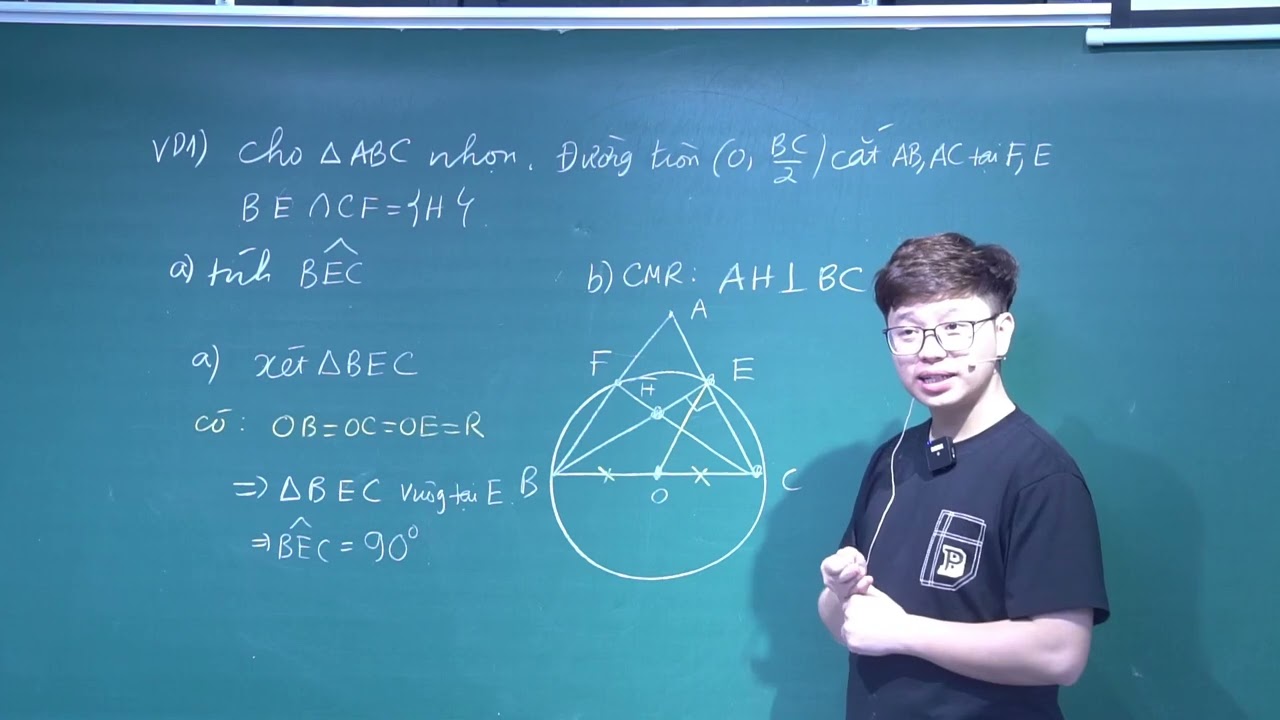 VD1) Cho △ABC nhọn. Đường tròn (O, BC/2) cắt AB, AC tại F, E
BE ∩ CF = {H}
a) tính BÊC
b) CMR: AH ⊥ BC
A
a) xét △BEC
F
H
E
có: OB = OC = OE = R
⇒ △BEC vuông tại E.
B
O
C
⇒ BÊC = 90°
P